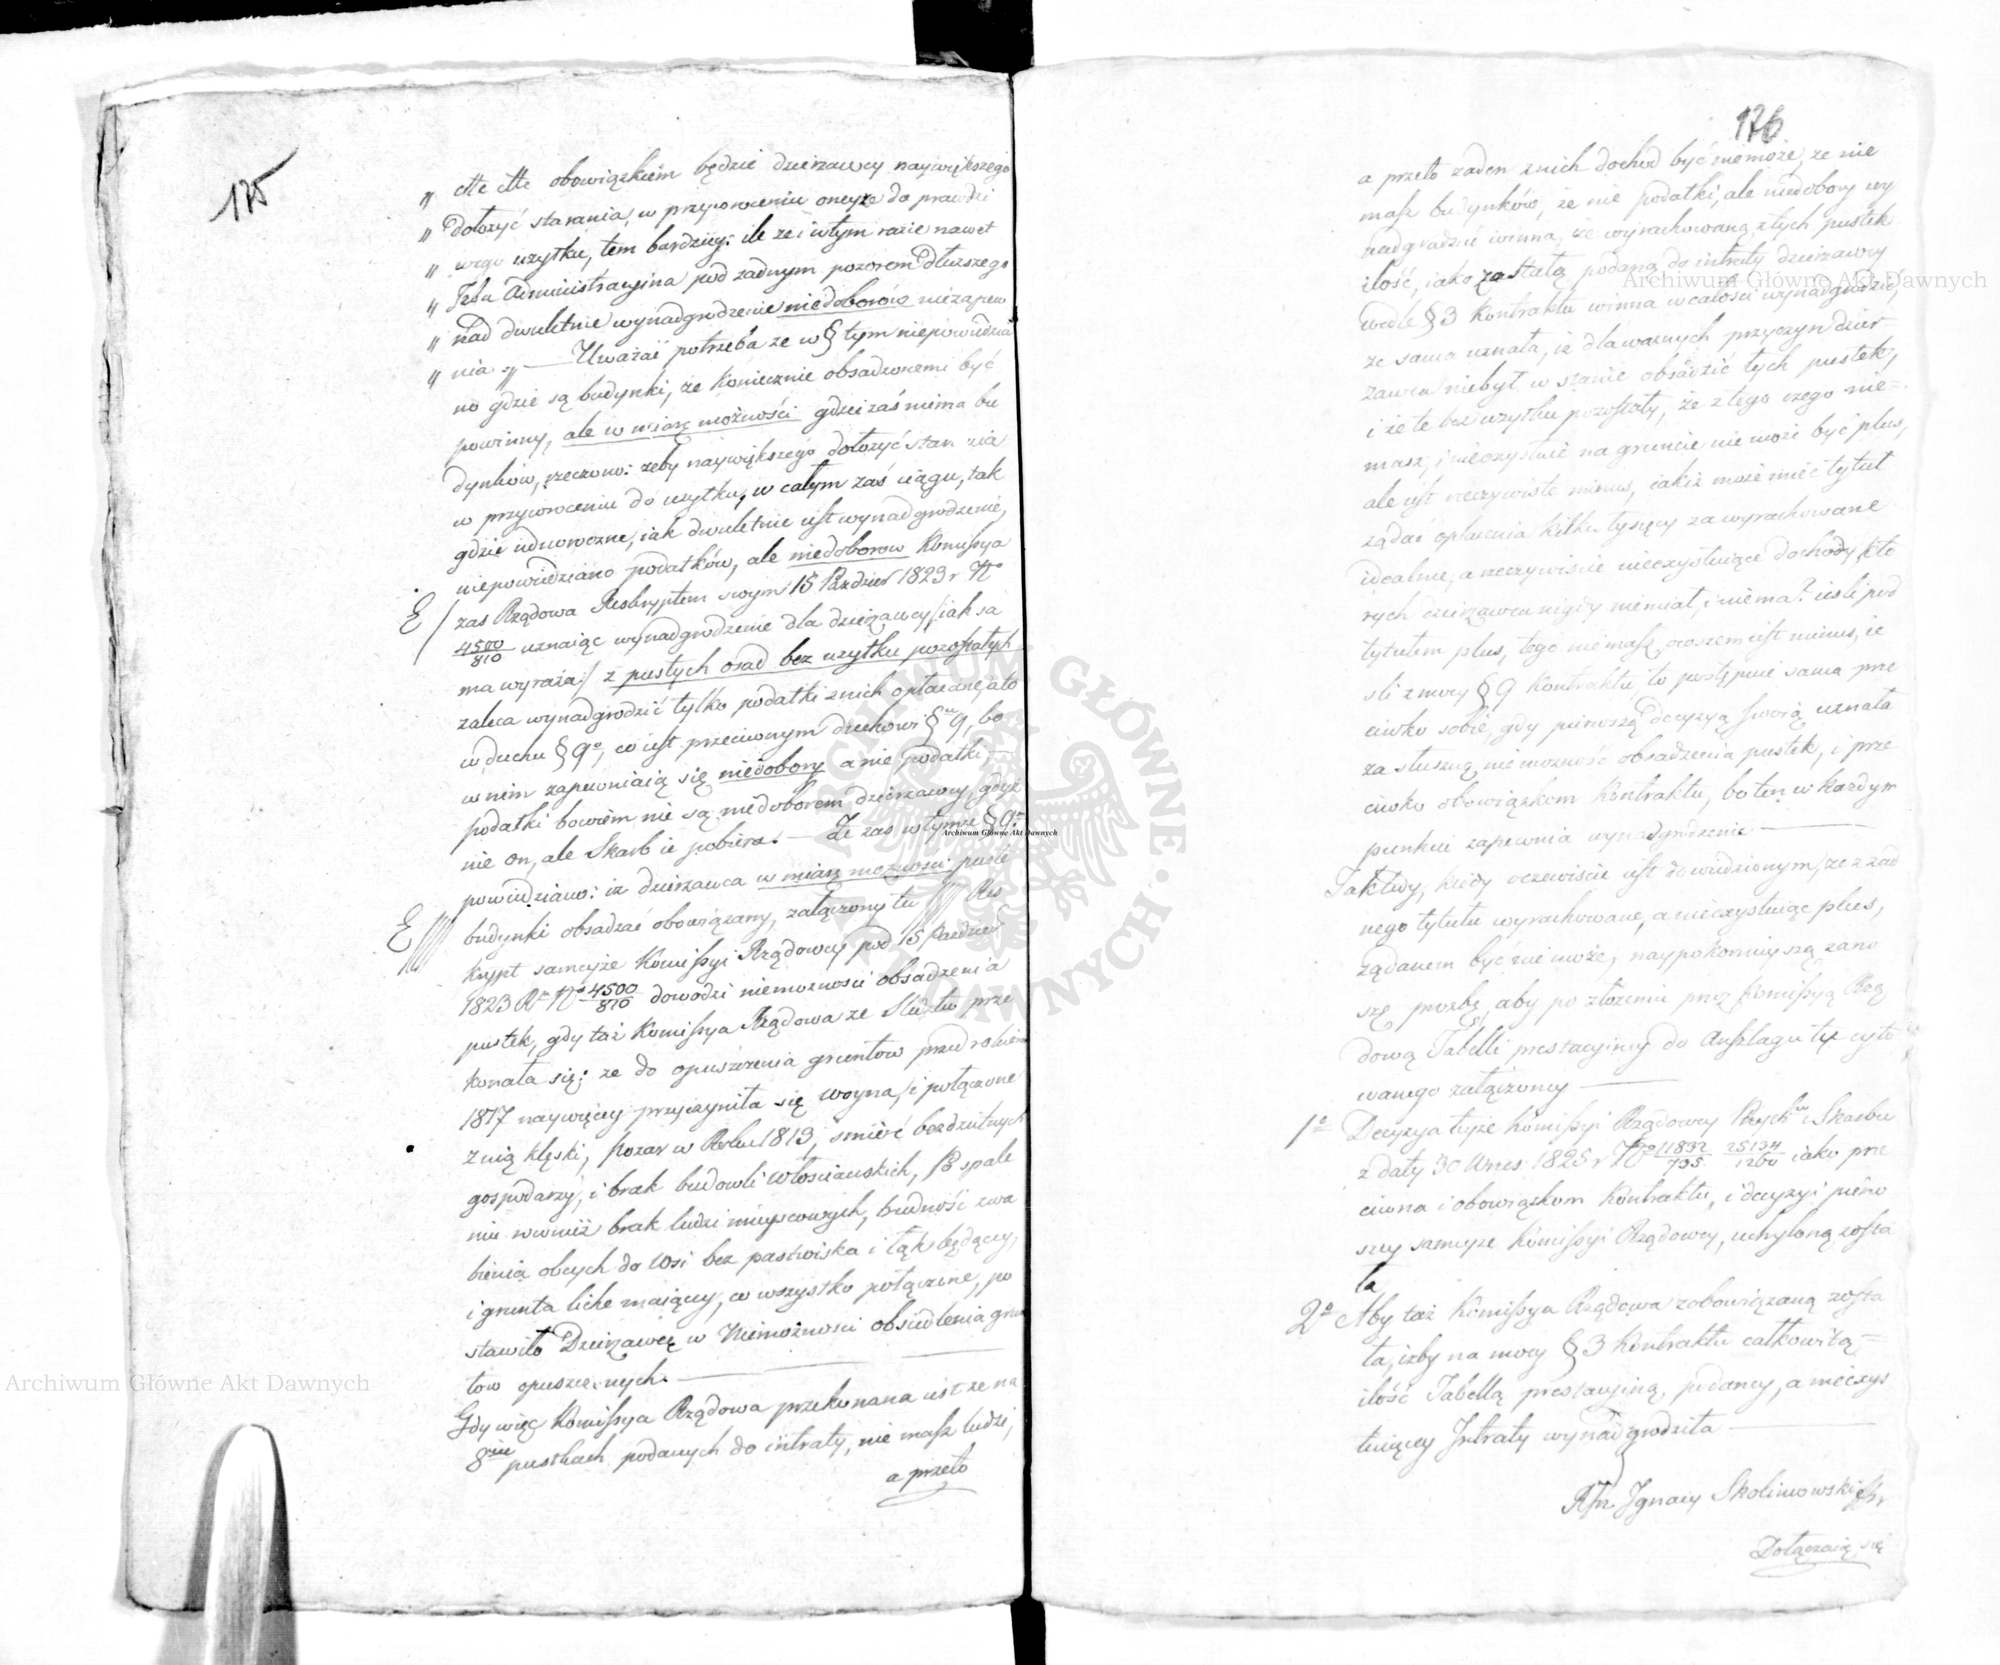 175
„ ctte ctte obowiązkiem będzie dzierzawcy naywiększego
„ dołożyć starania, w przywroceniu oneyże do prawdzi
„ wego uzytku, tem bardziey: ile ze i w tym razie nawet
„ Izba Administracyina pod zadnym pozorem dłuższego
„ nad dwuletnie wynadgrodzenie niedoborów niezapew
„ nia „ — Uważać potrzeba ze w § tym niepowiedzia
no gdzie są budynki, że koniecznie obsadzonemi być
powinny, ale w miarę możności gdzie zaś niema bu
dynków, rzeczono: zeby naywiększego dołożyć starania
w przywroceniu do uzytku, w całym zaś ciągu, tak
gdzie iednoroczne, iak dwuletnie iest wynadgrodzenie,
niepowiedziano podatków, ale niedoborow Komissya
zas Rządowa Reskryptem swym 15 Pazdzier 1823 r No
4500/810 uznaiąc wynadgrodzenie dla dzierzawcy /iak sa
ma wyraża/ z pustych osad bez uzytku pozostałych
zaleca wynadgrodzić tylko podatki z nich opłacane, a to
w duchu § 9o, co iest przeciwnym duchowi § 9, bo
w nim zapewniaią się niedobory a nie podatki,
podatki bowiem nie są niedoborem dzierzawcy, gdyż
nie on, ale Skarb ie pobiera. — Ze zas w tymze § 9o
powiedziano: iz dzierzawca w miarę mozności puste
budynki obsadzać obowiązany, załączony tu //// Res
krypt sameyże Komissyi Rządowey pod 15 Pazdzier
1823 R. No 4500/810 dowodzi niemozności obsadzenia
pustek, gdy taż Komissya Rządowa ze Sledztw prze
konała się: ze do opuszczenia gruntow przed rokiem
1817 naywięcey przyczyniła się woyna, i połączone
z nią klęski, pozar w Roku 1813, smierć bezdzietnych
gospodarzy, i brak budowli włościańskich, po spale
niu rownież brak ludzi mieyscowych, trudność zwa
bienia obcych do wsi bez pastwiska i łąk będącey,
i grunta liche maiącey, co wszystko połączone, po
stawiło Dzierzawcę w Niemożności obsiedlenia grun
tow opuszczonych. —
Gdy więc Komissya Rządowa przekonana iest ze na
8miu pustkach podanych do intraty, nie masz ludzi,
a przeto
176
a przeto zaden z nich dochod być niemoże, ze nie
masz budynków, że nie podatki, ale niedobory wy
nadgrodzić winna, że wyrachowaną z tych pustek
ilość, iako za stałą podaną do intraty dzierzawcy
wedle § 3 Kontraktu winna w całości wynadgrodzić,
ze sama uznała, iż dla waznych przyczyn dzier
zawca niebył w stanie obsadzić tych pustek,
i że te bez uzytku pozostały, że z tego czego nie=
masz, i nieczystnie na gruncie nie może być plus,
ale iest rzeczywiste minus, iakiż może mieć tytuł
ządać opłacenia kilku tysięcy za wyrachowane
idealnie, a rzeczywiście nieexystuiące dochody, któ
rych dzierzawca nigdy niemiał, i niema? iesli pod
tytułem plus, tego nie masz, owszem iest minus, ie
sli z mocy § 9 Kontraktu to postępuie sama prze
ciwko sobie, gdy pierwszą decyzyą swoią uznała
za słuszną niemozność obsadzenia pustek, i prze
ciwko obowiązkom Kontraktu, bo ten w kazdym
punkcie zapewnia wynadgrodzenie —
Tak tedy, kiedy oczewiście iest dowiedzionym, ze z zad
nego tytułu wyrachowane, a nieexystuiące plus,
ządanem być nie może, naypokornieyszą zano
szę prozbę, aby po złożeniu przez Komissyą Rzą
dową Tabelli prestacyiney do Anszlagu tu cyto
wanego załączoney —
1o Decyzya teyże Komissyi Rządowey Przychw i Skarbu
z daty 30 Wrześ 1825 r No 11832/735 25134/1260 iako prze
ciwna i obowiązkom Kontraktu, i decyzyi pierw
szey sameyże Komissyi Rządowey, uchyloną zosta
ła
2o Aby taż Komissya Rządowa zobowiązaną zosta
ła, izby na mocy § 3 Kontraktu całkowitą=
ilość Tabellą prestacyiną, podaney, a nieexys
tuiącey Intraty wynadgrodziła —
Ignacy Skolimowski
Dołączaią się